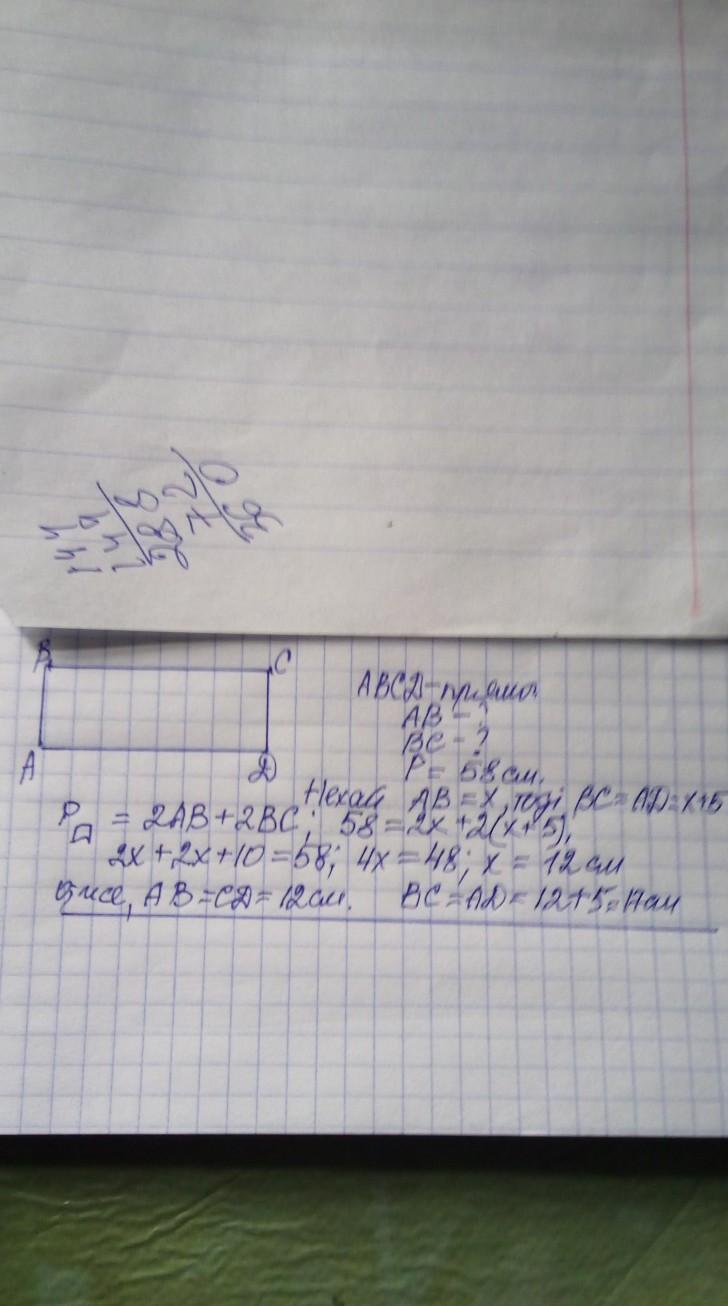 B
C
A
D
ABCD - прямок.
AB - ?
BC - ?
P = 58 см.
Нехай AB = x, тоді BC = AD = x+5
P = 2AB + 2BC; 58 = 2x + 2(x+5),
2x + 2x + 10 = 58; 4x = 48; x = 12 см
Отже, AB = CD = 12 см. BC = AD = 12 + 5 = 17 см